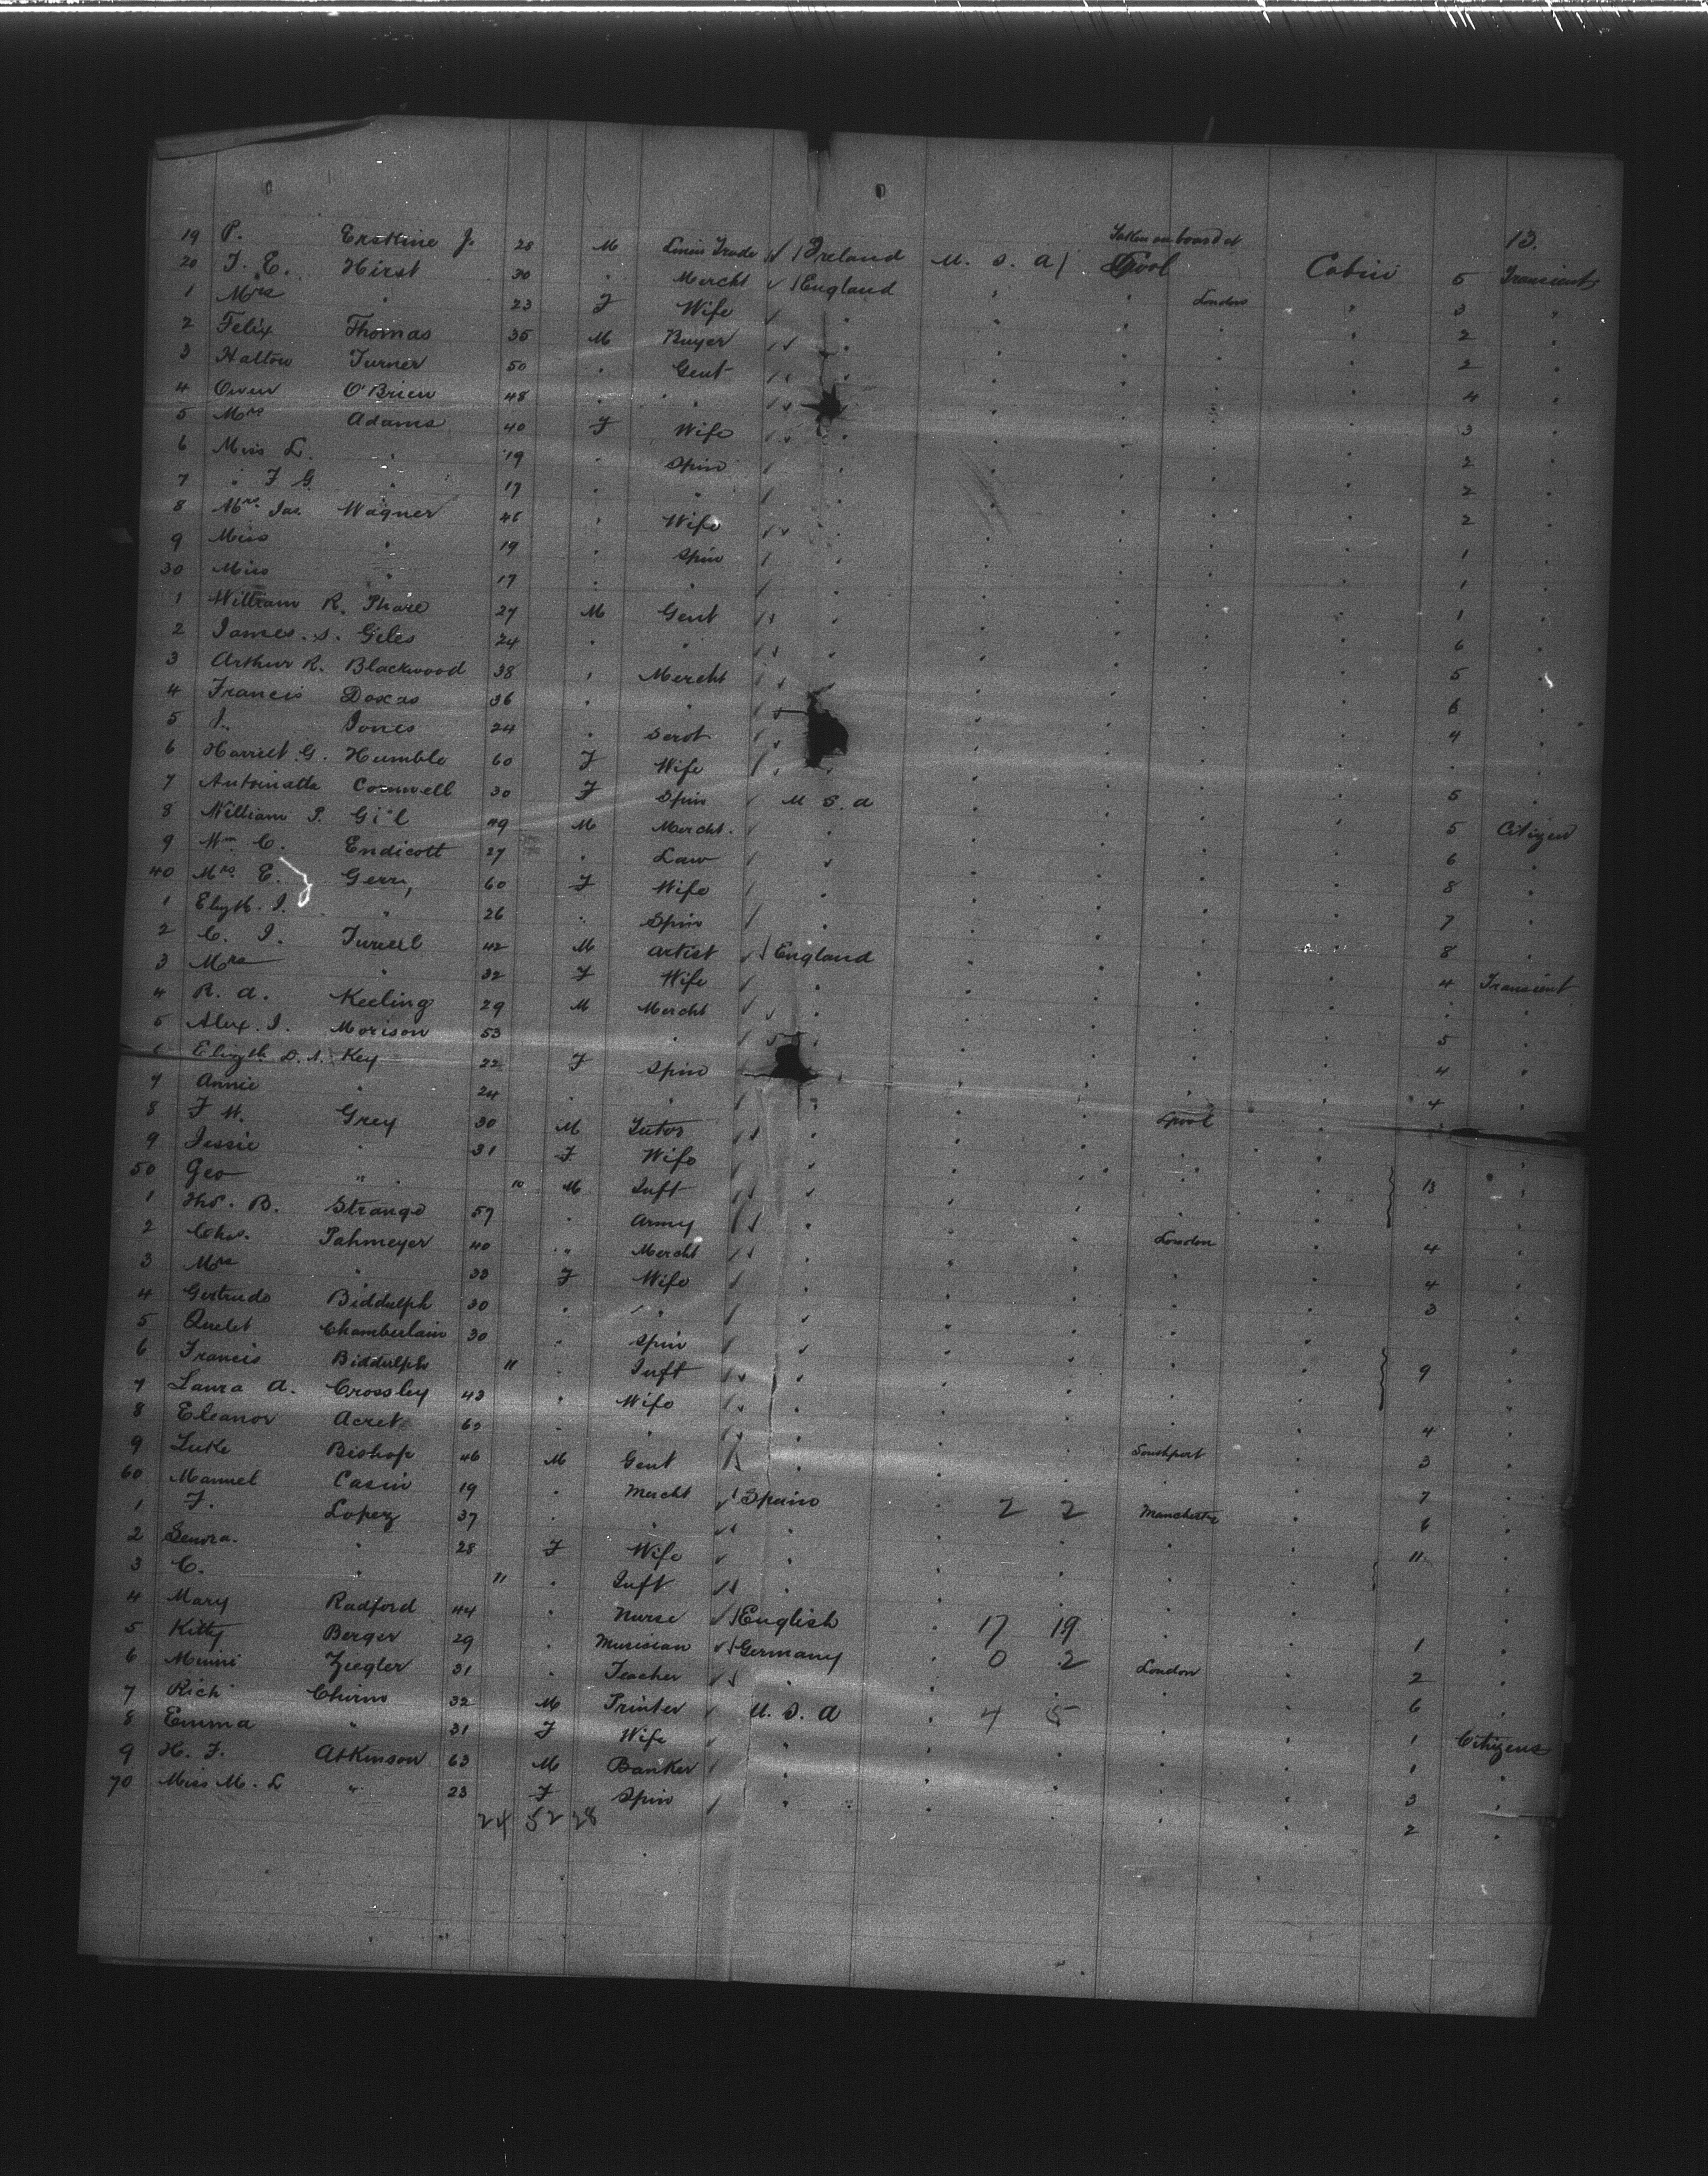 Taken on board at 13.
19 P. Erskine J. 28 M Linen Trade Ireland U. S. A L'pool Cabin 5 Transient
20 J. E. Hirst 30 " Mercht England " " London " 3 "
1 Mrs " 23 F Wife " " " " 2 "
2 Felix Thomas 35 M Buyer " " " " 2 "
3 Hatton Turner 50 " Gent " " " " 4 "
4 Owen O'Brien 48 " " " " " 3 "
5 Mrs Adams 40 F Wife " " " " 2 "
6 Miss L. " 19 " Spin " " " " 2 "
7 " F G " 17 " " " " " " 2 "
8 Mrs. Jas. Wagner 46 " Wife " " " " 1 "
9 Miss " 19 " Spin " " " " 1 "
30 Miss " 17 " " " " " " 1 "
1 William R. Phare 27 M Gent " " " " 6 "
2 James. S. Giles 24 " " " " " " 5 "
3 Arthur R. Blackwood 38 " Mercht " " " " 6 "
4 Francis 36 " " " " " 4 "
5 J. Jones 24 " Servt " " " "
6 Harriet G. Humble 60 F Wife " " " " 5 "
7 Antoinatta Cornwell 30 F Spin U S. A " " " 5 Citizen
8 William P. Gill 49 M Mercht. " " " " 6 "
9 Wm C. Endicott 27 " Law " " " " 8 "
40 Mrs. E. Gerry 60 F Wife " " " " 7 "
1 Elizth. I. " 26 " Spin " " " " 8 "
2 C. J. 42 M Artist England " " " 4 Transient
3 Mrs " 32 F Wife " " " " "
4 R. A. Keeling 29 M Mercht " " " " 5 "
5 Alex. J. Morison 53 " " " " " 4 "
6 Elizth. D. S. Key 22 F Spin " " " 4 "
7 Annie " 24 " " " " L'pool "
8 F W. Grey 30 M Tutor " " " "
9 Jessie " 31 F Wife " " " " 13 "
50 Geo " " 10 M Inft " " " "
1 Thos. B. Strange 57 " Army " " London " 4 "
2 Chas. Pahmeyer 40 " Mercht " " " " 4 "
3 Mrs " 33 F Wife " " " " 3 "
4 Gertrude Biddulph 30 " " " " " " "
5 Chamberlain 30 " Spin " " " " 9 "
6 Francis Biddulph 11 " Inft " " " "
7 Laura A. Crossley 43 " Wife " " " " 4 "
8 Eleanor Acret 60 " " " " Southport " 3 "
9 Luke Bishop 46 M Gent " " " " 7 "
60 Manuel Casin 19 " Mercht Spain " 2 2 Manchester " 6 "
1 F. Lopez 37 " " " " " " 11 "
2 Senora. " 28 F Wife " " " "
3 C. " 11 " Inft " " " "
4 Mary Radford 44 " Nurse English " 17 19 " " 1 "
5 Kitty Berger 29 " Musician Germany " 0 2 London " 2 "
6 Minni Ziegler 31 " Teacher " " " " 6 "
7 Rich Chirm 32 M Printer U. S. A " 4 5 " " 1 Citizens
8 Emma " 31 F Wife " " " " 1 "
9 H. J. Atkinson 63 M Banker " " " " 3 "
70 Miss M. L " 23 F Spin " " " " 2 "
24 52 28